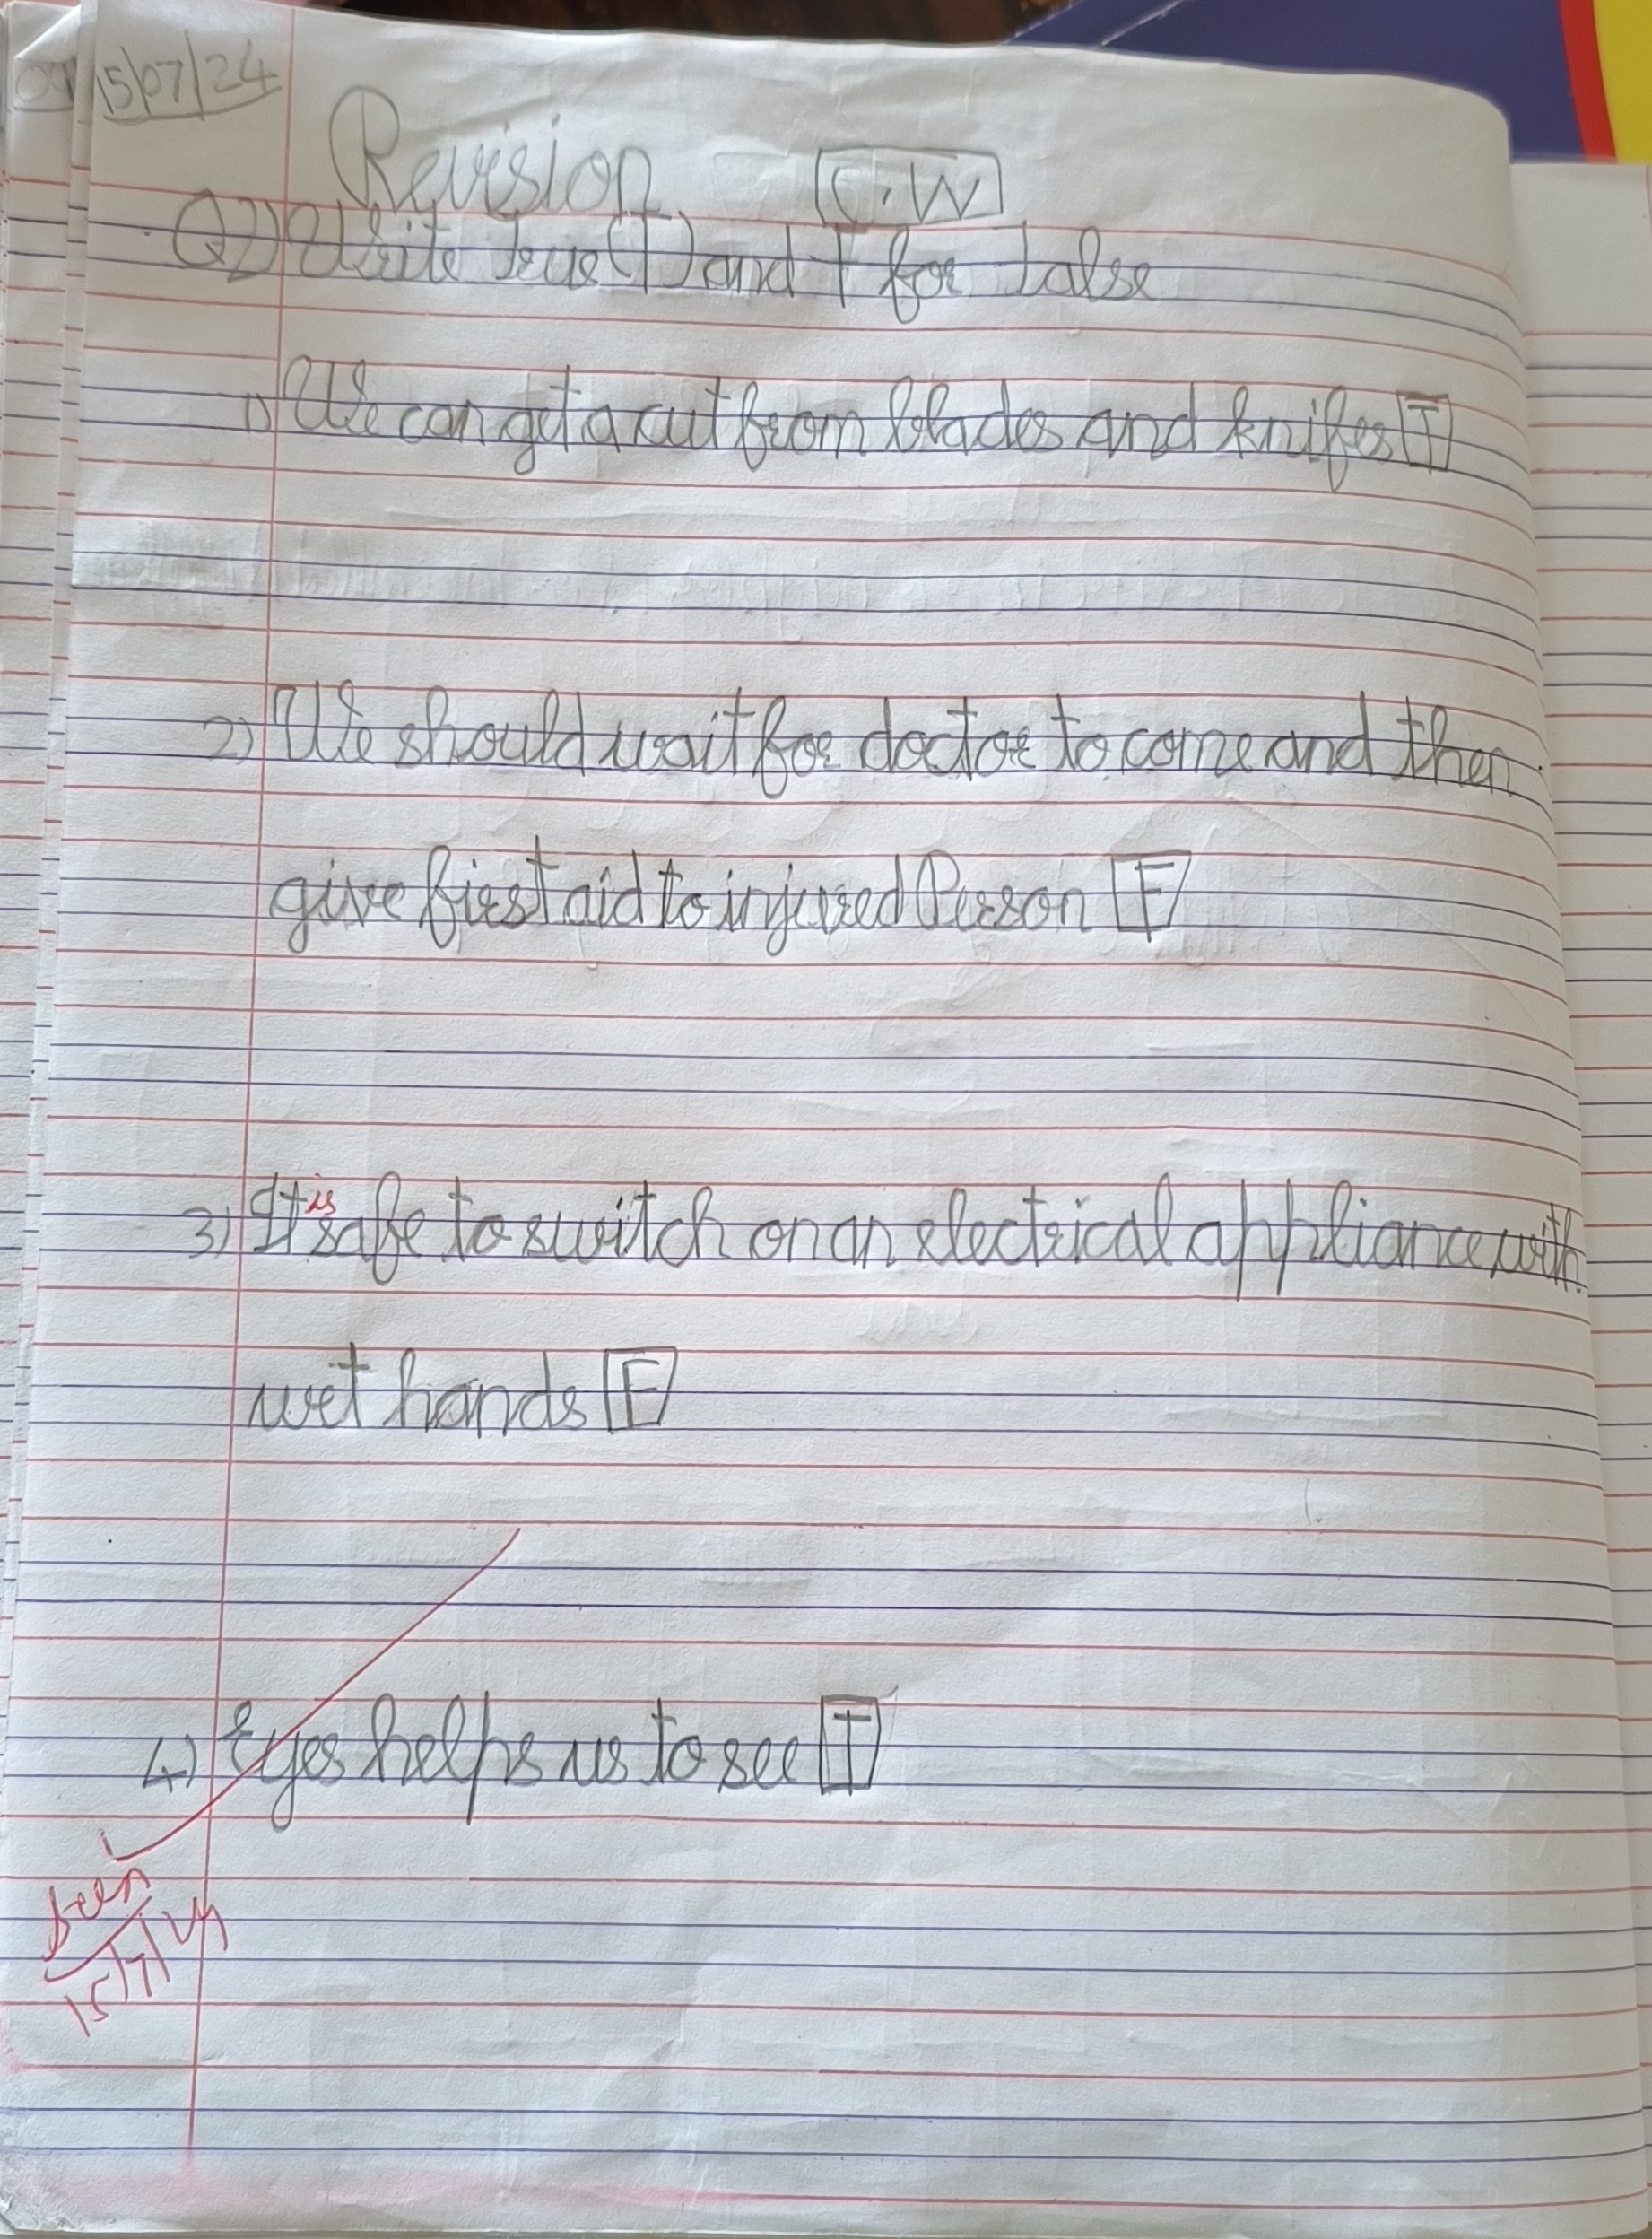 15/07/24
Revision C.W
Q2) Write True (T) and F for False
1) We can get a cut from blades and knifes T
2) We should wait for doctor to come and then
give first aid to injured Person F
3) It is safe to switch on an electrical appliance with
wet hands F
4) Eyes helps us to see T
Seen
15/7/24